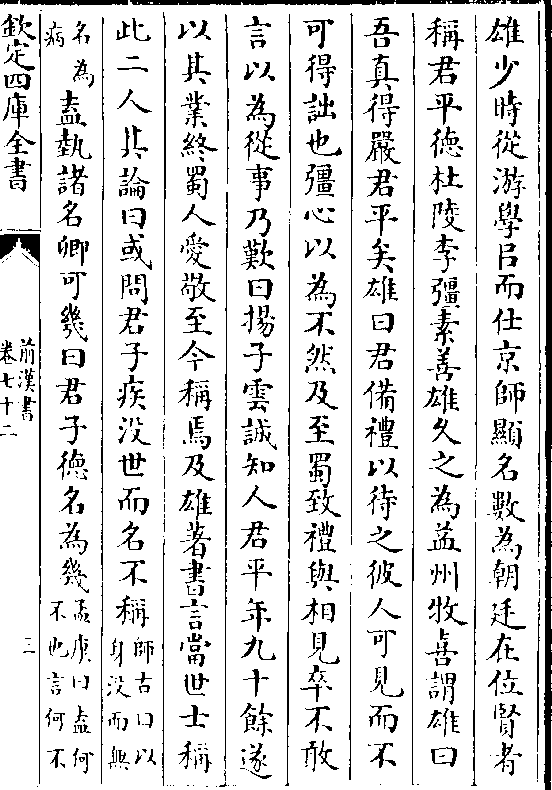 雄少時從游學㠯而仕京師顯名數為朝廷在位賢者
稱君平德杜陵李彊素善雄久之為益州牧喜謂雄曰
吾真得嚴君平矣雄曰君備禮以待之彼人可見而不
可得詘也彊心以為不然及至蜀致禮與相見卒不敢
言以為從事乃歎曰揚子雲誠知人君平年九十餘遂
以其業終蜀人愛敬至今稱焉及雄著書言當世士稱
此二人其論曰或問君子疾没世而名不稱師古曰以身没而無
名為病盍埶諸名卿可幾曰君子德名為幾孟康曰盍何不也言何不
欽定四庫全書
前漢書
卷七十二
三